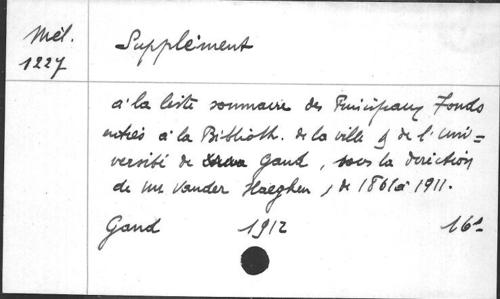 Mél.
1227
Supplément
à la liste sommaire des Principaux Fonds
entrés à la Biblioth. de la ville & de l'Uni=
versité de Gand, sous la direction
de Mr Vander Haeghen, de 1861 à 1911.
Gand 1912 16°